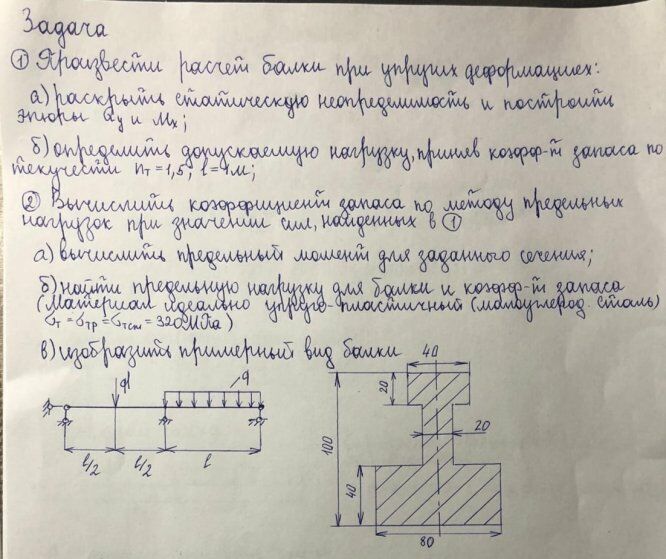 Задача
① Произвести расчет балки при упругих деформациях:
а) раскрыть статическую неопределимость и построить
эпюры Qy и Mx;
б) определить допускаемую нагрузку, приняв коэфф-т запаса по
текучести nт = 1,5; l = 4м;
② Вычислить коэффициент запаса по методу предельных
нагрузок при значении сил, найденных в ①
а) вычислить предельный момент для заданного сечения;
б) найти предельную нагрузку для балки и коэфф-т запаса
(Материал идеально упруго-пластичный (малоуглерод. сталь)
σт = σтр = σтсж = 320 МПа)
в) изобразить примерный вид балки
ql
q
l/2
l/2
l
40
20
100
20
40
80